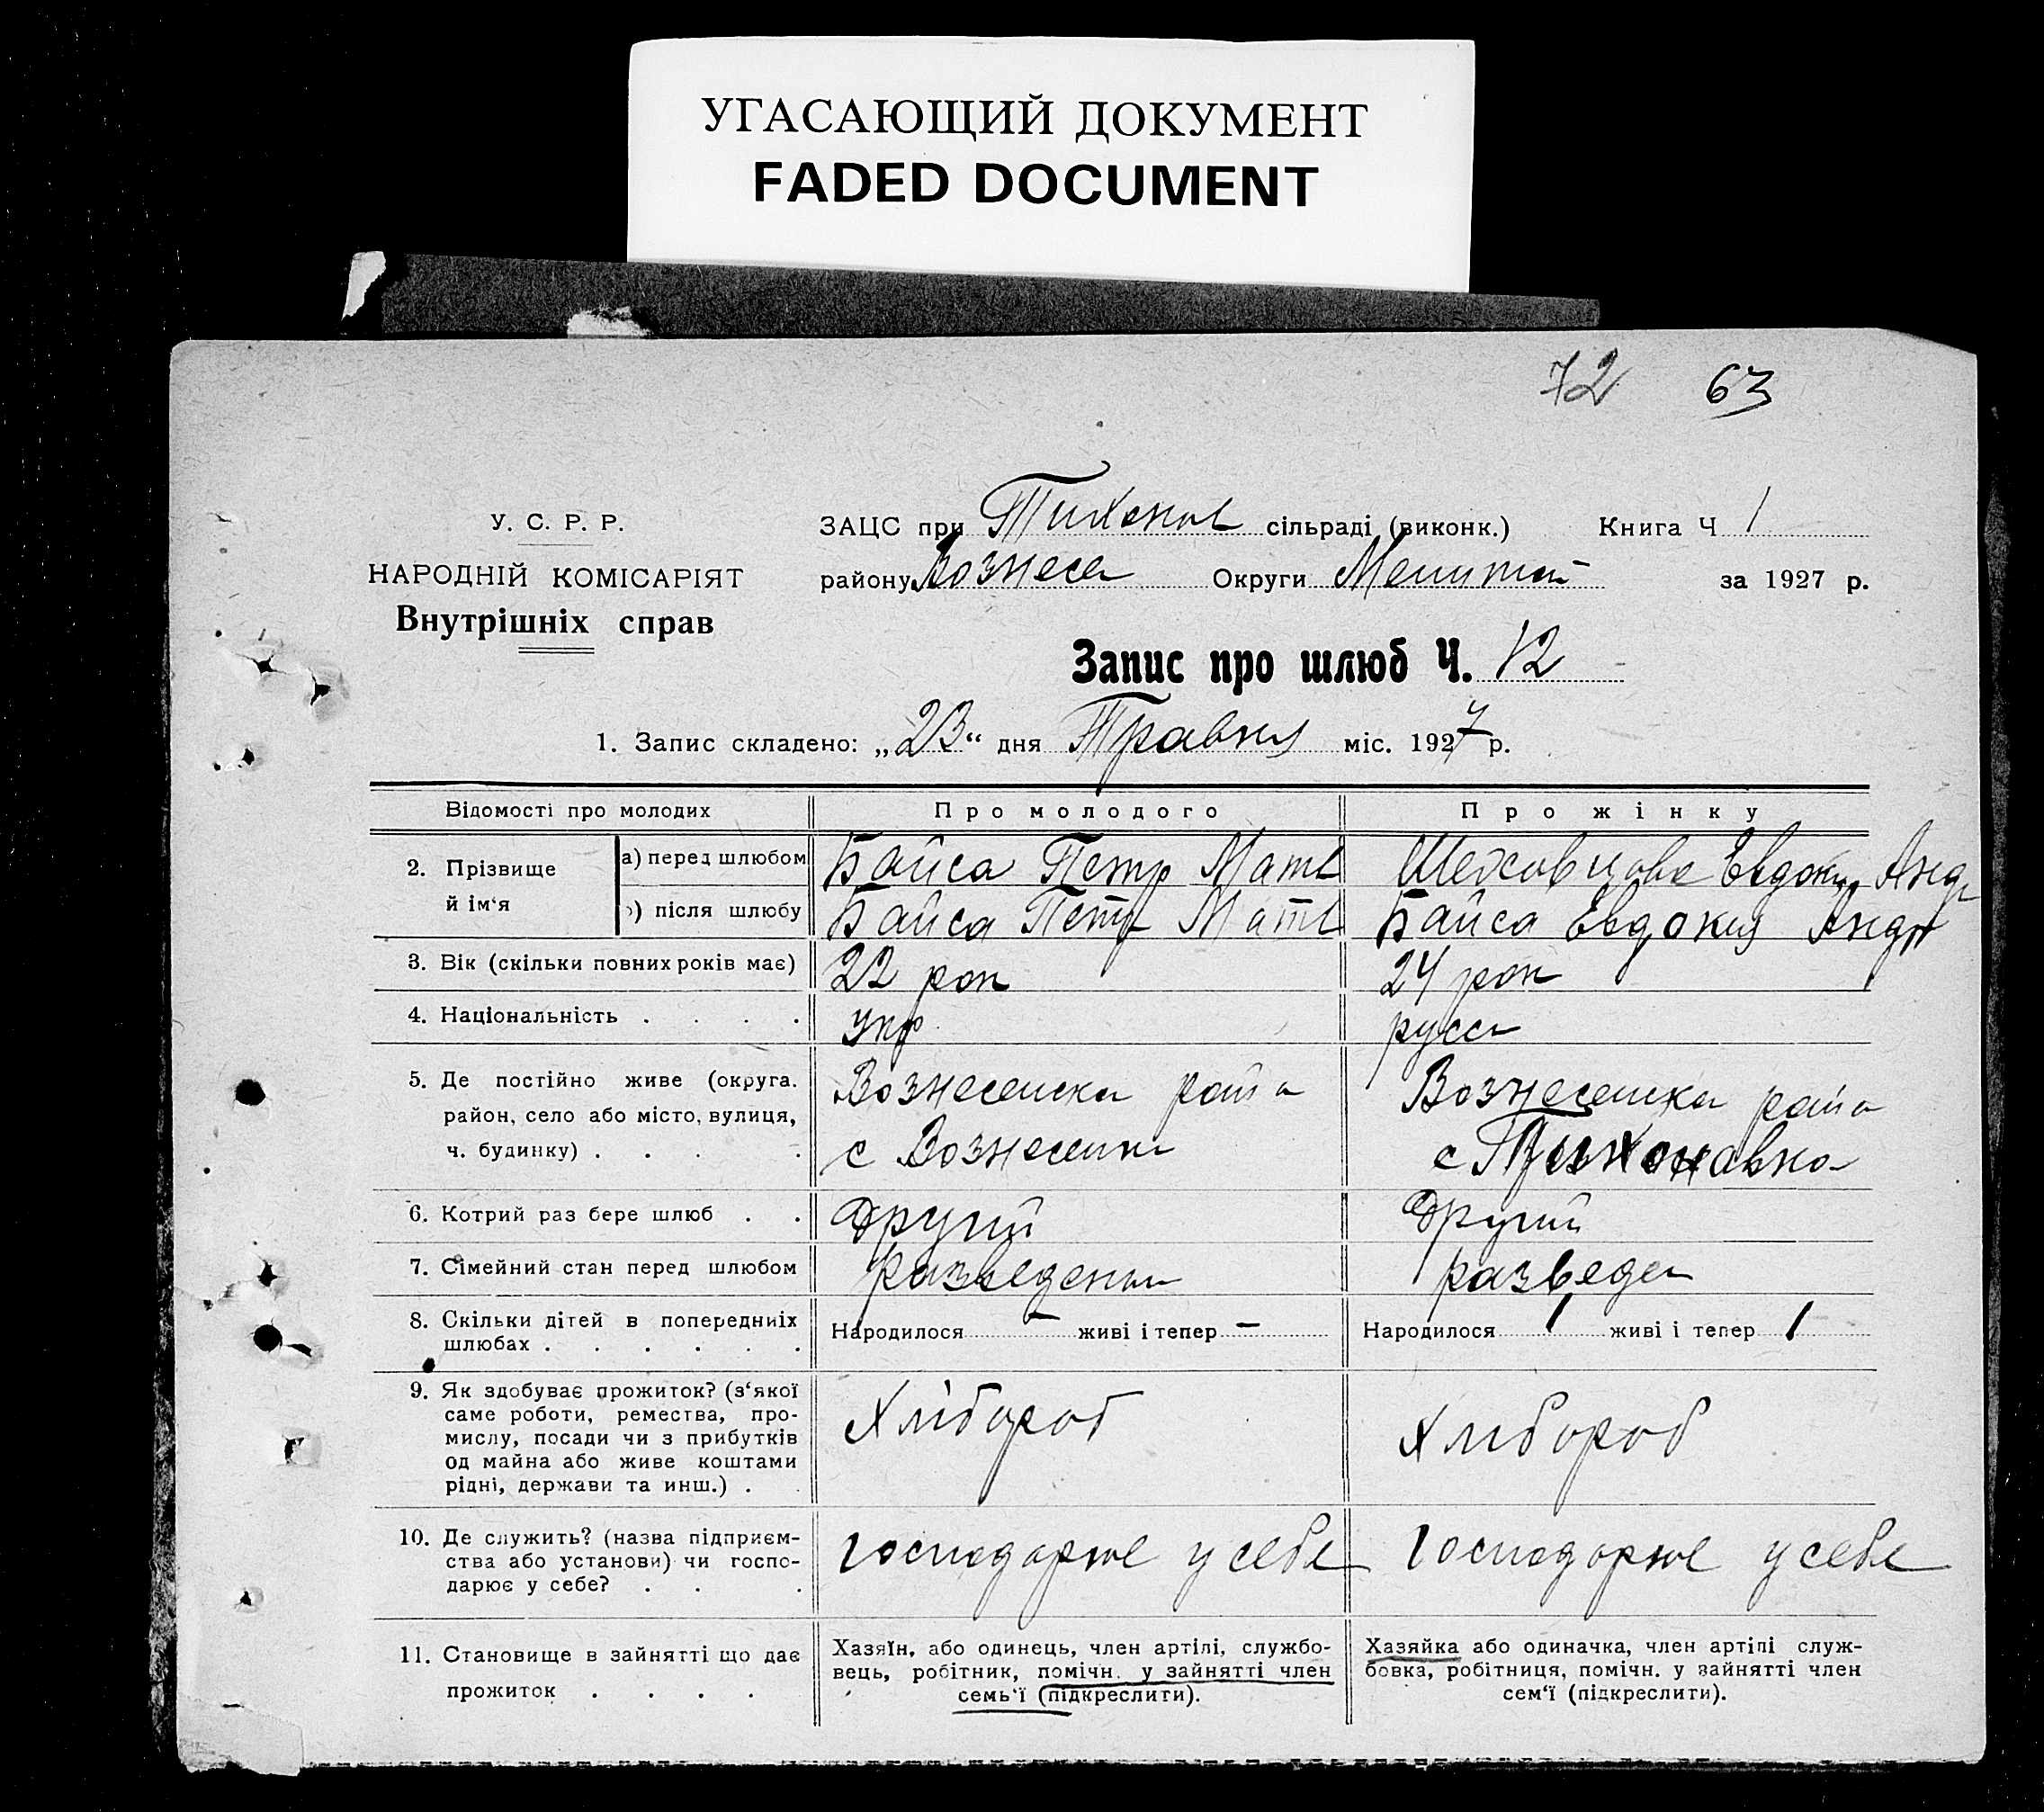 УГАСАЮЩИЙ ДОКУМЕНТ
FADED DOCUMENT
72 63
У. С. Р. Р.
НАРОДНІЙ КОМІСАРІЯТ
Внутрішніх справ
ЗАЦС при Тихонов сільраді (виконк.) Книга Ч 1
району Вознесе Округи за 1927 р.
Запис про шлюб Ч. 12
1. Запис складено: „23“ дня Травня міс. 1927 р.
Відомості про молодих Про молодого Про жінку
2. Прізвище й ім‘я
а) перед шлюбом Байса Петр Матв Шеховцова Евдоки Андр
б) після шлюбу Байса Петр Матв Байса Евдокия Андр
3. Вік (скільки повних років має) 22 рок 24 рок
4. Національність . . . . укр русск
5. Де постійно живе (округа. Вознесенска райо Вознесенска райо
район, село або місто, вулиця,
ч. будинку) . . . . с Вознесенк с Тихоновка
6. Котрий раз бере шлюб . . Другий Другий
7. Сімейний стан перед шлюбом разведены разведен
8. Скільки дітей в попередниіх
шлюбах . . . . . . Народилося – живі і тепер – Народилося 1 живі і тепер 1
9. Як здобуває прожиток? (з‘якої
саме роботи, ремества, про-
мислу, посади чи з прибутків
од майна або живе коштами
рідні, держави та инш.) .
Хлібороб Хлибороб
10. Де служить? (назва підприєм-
ства або установи) чи госпо-
дарює у себе? . . .
господарює у себе господарює у себе
11. Становище в зайнятті що дає
прожиток . . . .
Хазяїн, або одинець, член артілі, службо-
вець, робітник, помічн. у зайнятті член
семь‘ї (підкреслити).
Хазяйка або одиначка, член артілі служ-
бовка, робітниця, помічн. у зайнятті член
сем‘ї (підкреслити).